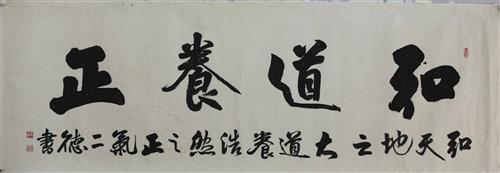 和道養正
和天地之大道養浩然之正氣二德書